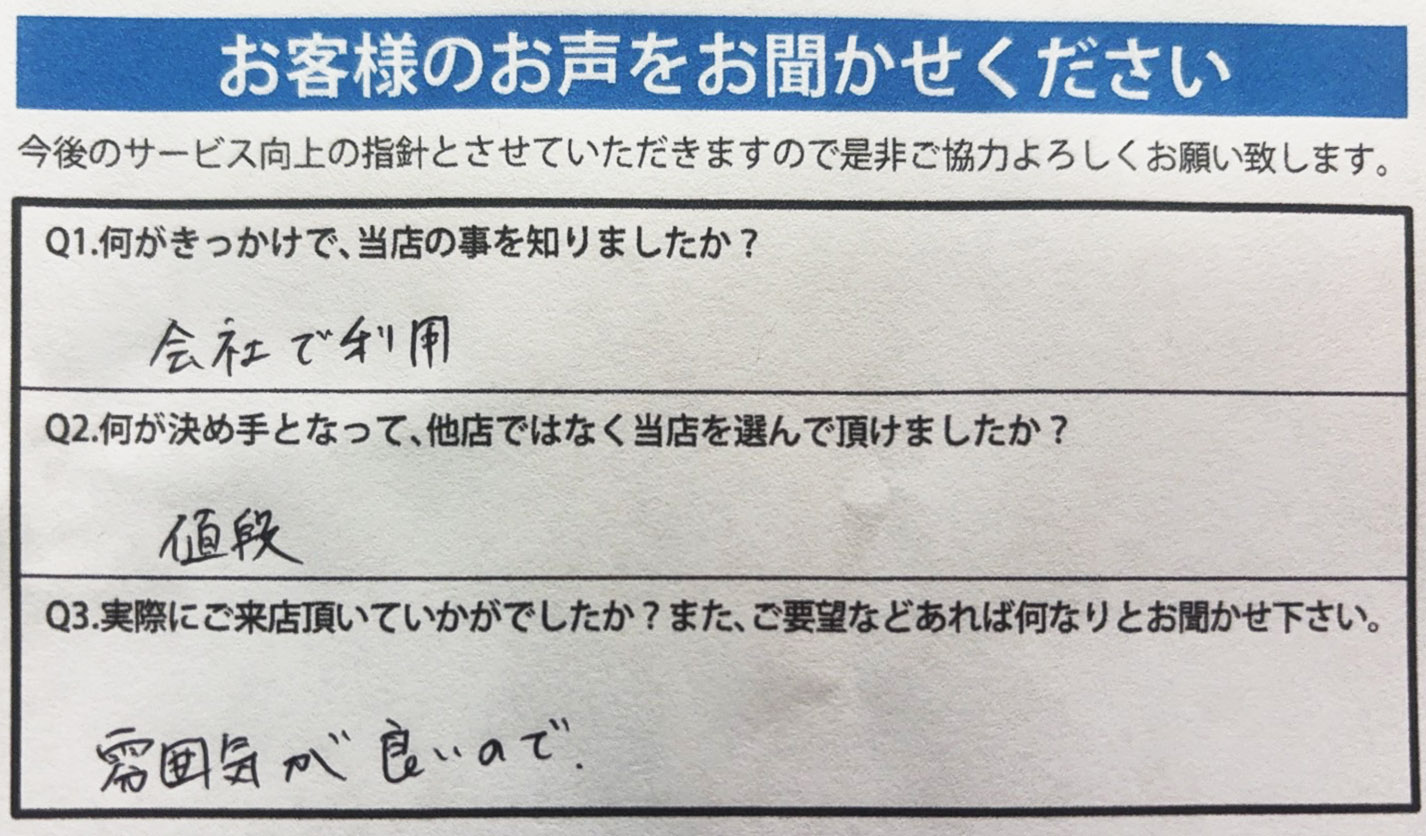 お客様のお声をお聞かせください
今後のサービス向上の指針とさせていただきますので是非ご協力よろしくお願い致します。
Q1.何がきっかけで、当店の事を知りましたか？
会社で利用
Q2.何が決め手となって、他店ではなく当店を選んで頂けましたか？
値段
Q3.実際にご来店頂いていかがでしたか？また、ご要望などあれば何なりとお聞かせ下さい。
雰囲気が良いので.